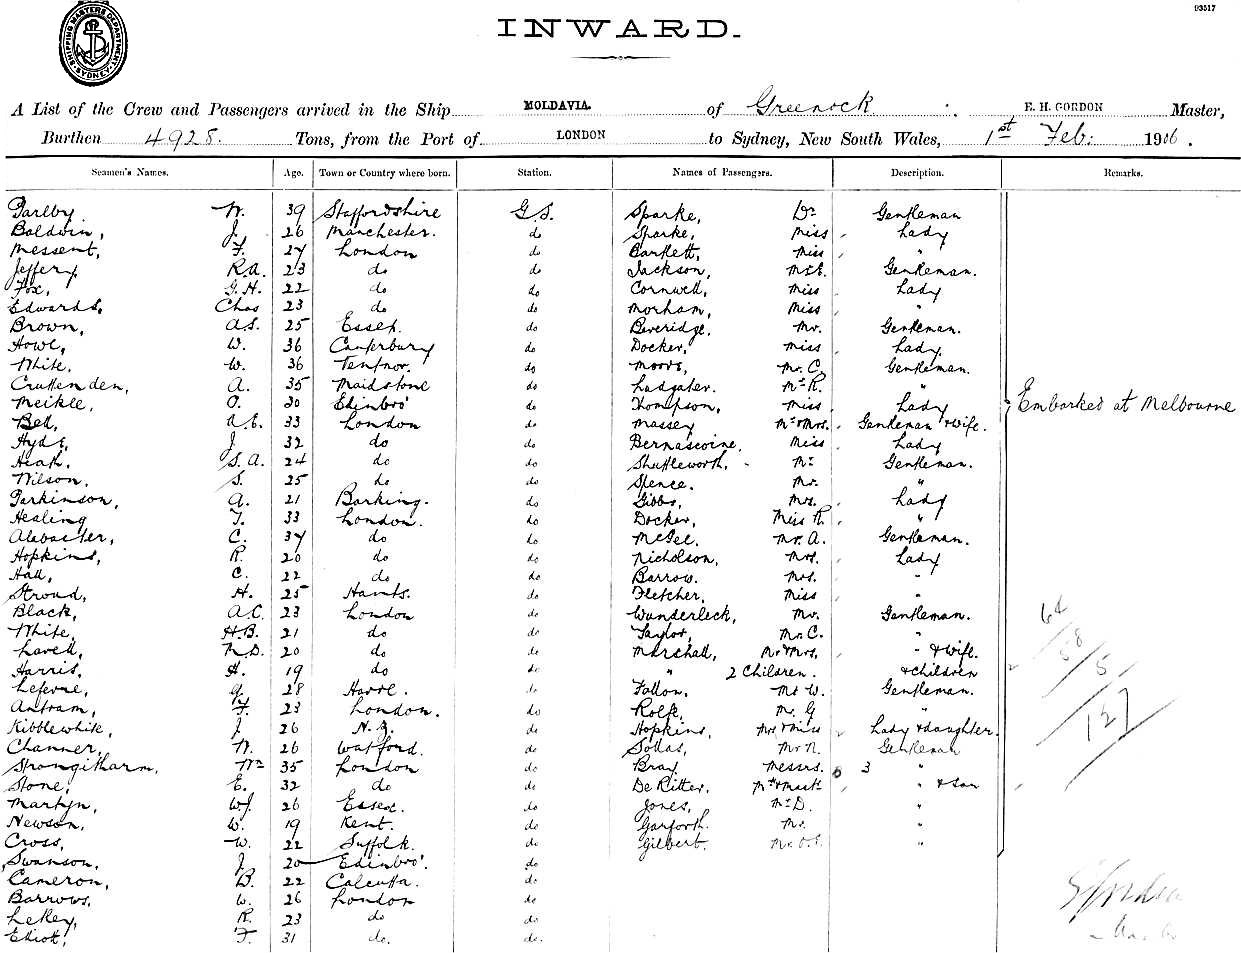 93517
SHIPPING MASTERS DEPARTMENT SYDNEY
INWARD.
A List of the Crew and Passengers arrived in the Ship MOLDAVIA. of Greenock. E. H. GORDON Master,
Burthen 4928. Tons, from the Port of LONDON to Sydney, New South Wales, 1st Feb. 1906.
Seamen's Names. Age. Town or Country where born. Station. Names of Passengers. Description. Remarks.
Parlby. W. 39 Staffordshire G.S. Sparke, Dr Gentleman
Baldwin, J. 26 Manchester. do Sparke, Miss Lady
Messent, F. 27 London do Bartlett, Miss "
Jeffery R.A. 23 do do Jackson, Gentleman.
Fox, G.H. 22 do do Cornwell, Miss Lady
Edwards, Chas 23 do do Morham, Miss "
Brown, A.S. 25 Essex. do Beveridge, Mr. Gentleman.
Howe, W. 36 Canterbury do Docker, Miss Lady
White. W. 36 Ventnor. do Morris, Mr. C. Gentleman.
Cruttenden, A. 35 Maidstone do Ludgater. Mr R. "
Meikle, O. 30 Edinbro' do Thompson, Miss Lady Embarked at Melbourne
Bell, A.E. 33 London do Massey Mr & Mrs. Gentleman & wife.
Hyde, J. 32 do do Bernascoine, Miss Lady
Heath, S.A. 24 do do Shuttleworth, Mr Gentleman.
Wilson, S. 25 do do Spence. Mr. "
Parkinson, A. 21 Barking. do Gibbs, Mrs. Lady
Healing T. 33 London. do Docker, Miss R. "
Alabaster, C. 37 do do McGee. Mr. A. Gentleman.
Hopkins, R. 20 do do Nicholson, Mrs. Lady
Hall, C. 22 do do Barrow. Mrs. "
Stroud, H. 25 Hants. do Fletcher, Miss "
Black, A.C. 23 London do Wunderlick, Mr. Gentleman.
White, H.B. 21 do do Taylor, Mr. C. "
Lovell, N.D. 20 do do Marshall, Mr & Mrs. " & wife.
Harris, H. 19 do do " 2 Children. & children
Lefevre, G. 28 Havre. do Fallon, Mr W. Gentleman.
Antram, F. 23 London. do Rolfe, Mr. G "
Kibblewhite, J. 26 N.Z. do Hopkins, Mrs & Miss Lady & daughter.
Channer, W. 26 Watford. do Sollas, Mr N. Gentleman
Strongitharm, Wm 35 London do Bray Messrs. 3 "
Stone, E. 32 do do De Ritter, " & son
Martyn, W.J. 26 Essex. do Jones, Mr D. "
Newson, W. 19 Kent. do Garforth. Mr. "
Cross, W. 22 Suffolk. do Gilbert. "
Swanson, J. 20 Edinbro'. do
Cameron, D. 22 Calcutta. do
Barrows, W. 26 London do
LeKey, R. 23 do do
Elliott, F. 31 do. do.
64
58
5
127